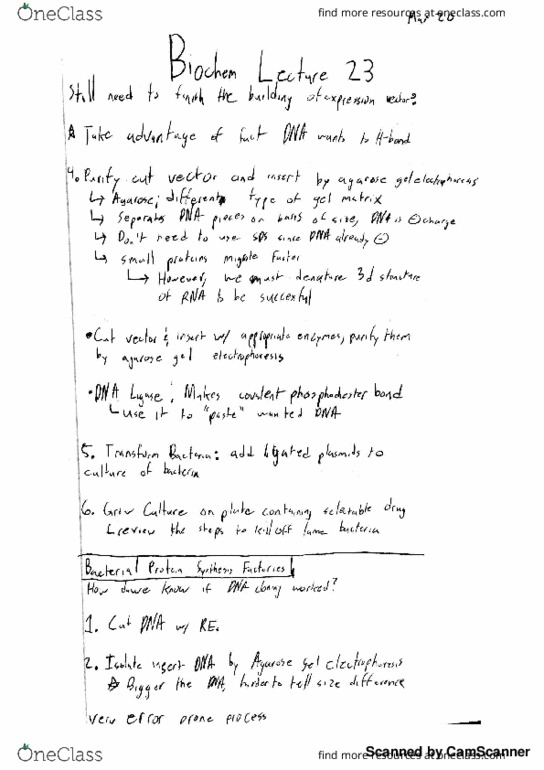 OneClass
find more resources at oneclass.com
Mar 20
Biochem Lecture 23
Still need to finish the building of expression vector?
Take advantage of fact DNA wants to H-bond
4. Purify cut vector and insert by agarose gel electrophoresis
↳ Agarose; different type of gel matrix
↳ Separates DNA pieces on basis of size, DNA is ⊖ charge
↳ Don't need to use SDS since DNA already ⊖
↳ Small proteins migrate faster
↳ However, we must denature 3d structure
of RNA to be successful
• Cut vector & insert w/ appropriate enzymes, purify them
by agarose gel electrophoresis
• DNA Ligase; Makes covalent phosphodiester bond
↳ Use it to "paste" wanted DNA
5. Transform Bacteria: add ligated plasmids to
culture of bacteria
6. Grow Culture on plate containing selectable drug
↳ review the steps to kill off some bacteria
Bacterial Protein Synthesis Factories
How do we know if DNA cloning worked?
1. Cut DNA w/ RE.
2. Isolate insert DNA by Agarose gel electrophoresis
Bigger the DNA, harder to tell size difference
very error prone process
OneClass
find more resources at oneclass.com
Scanned by CamScanner